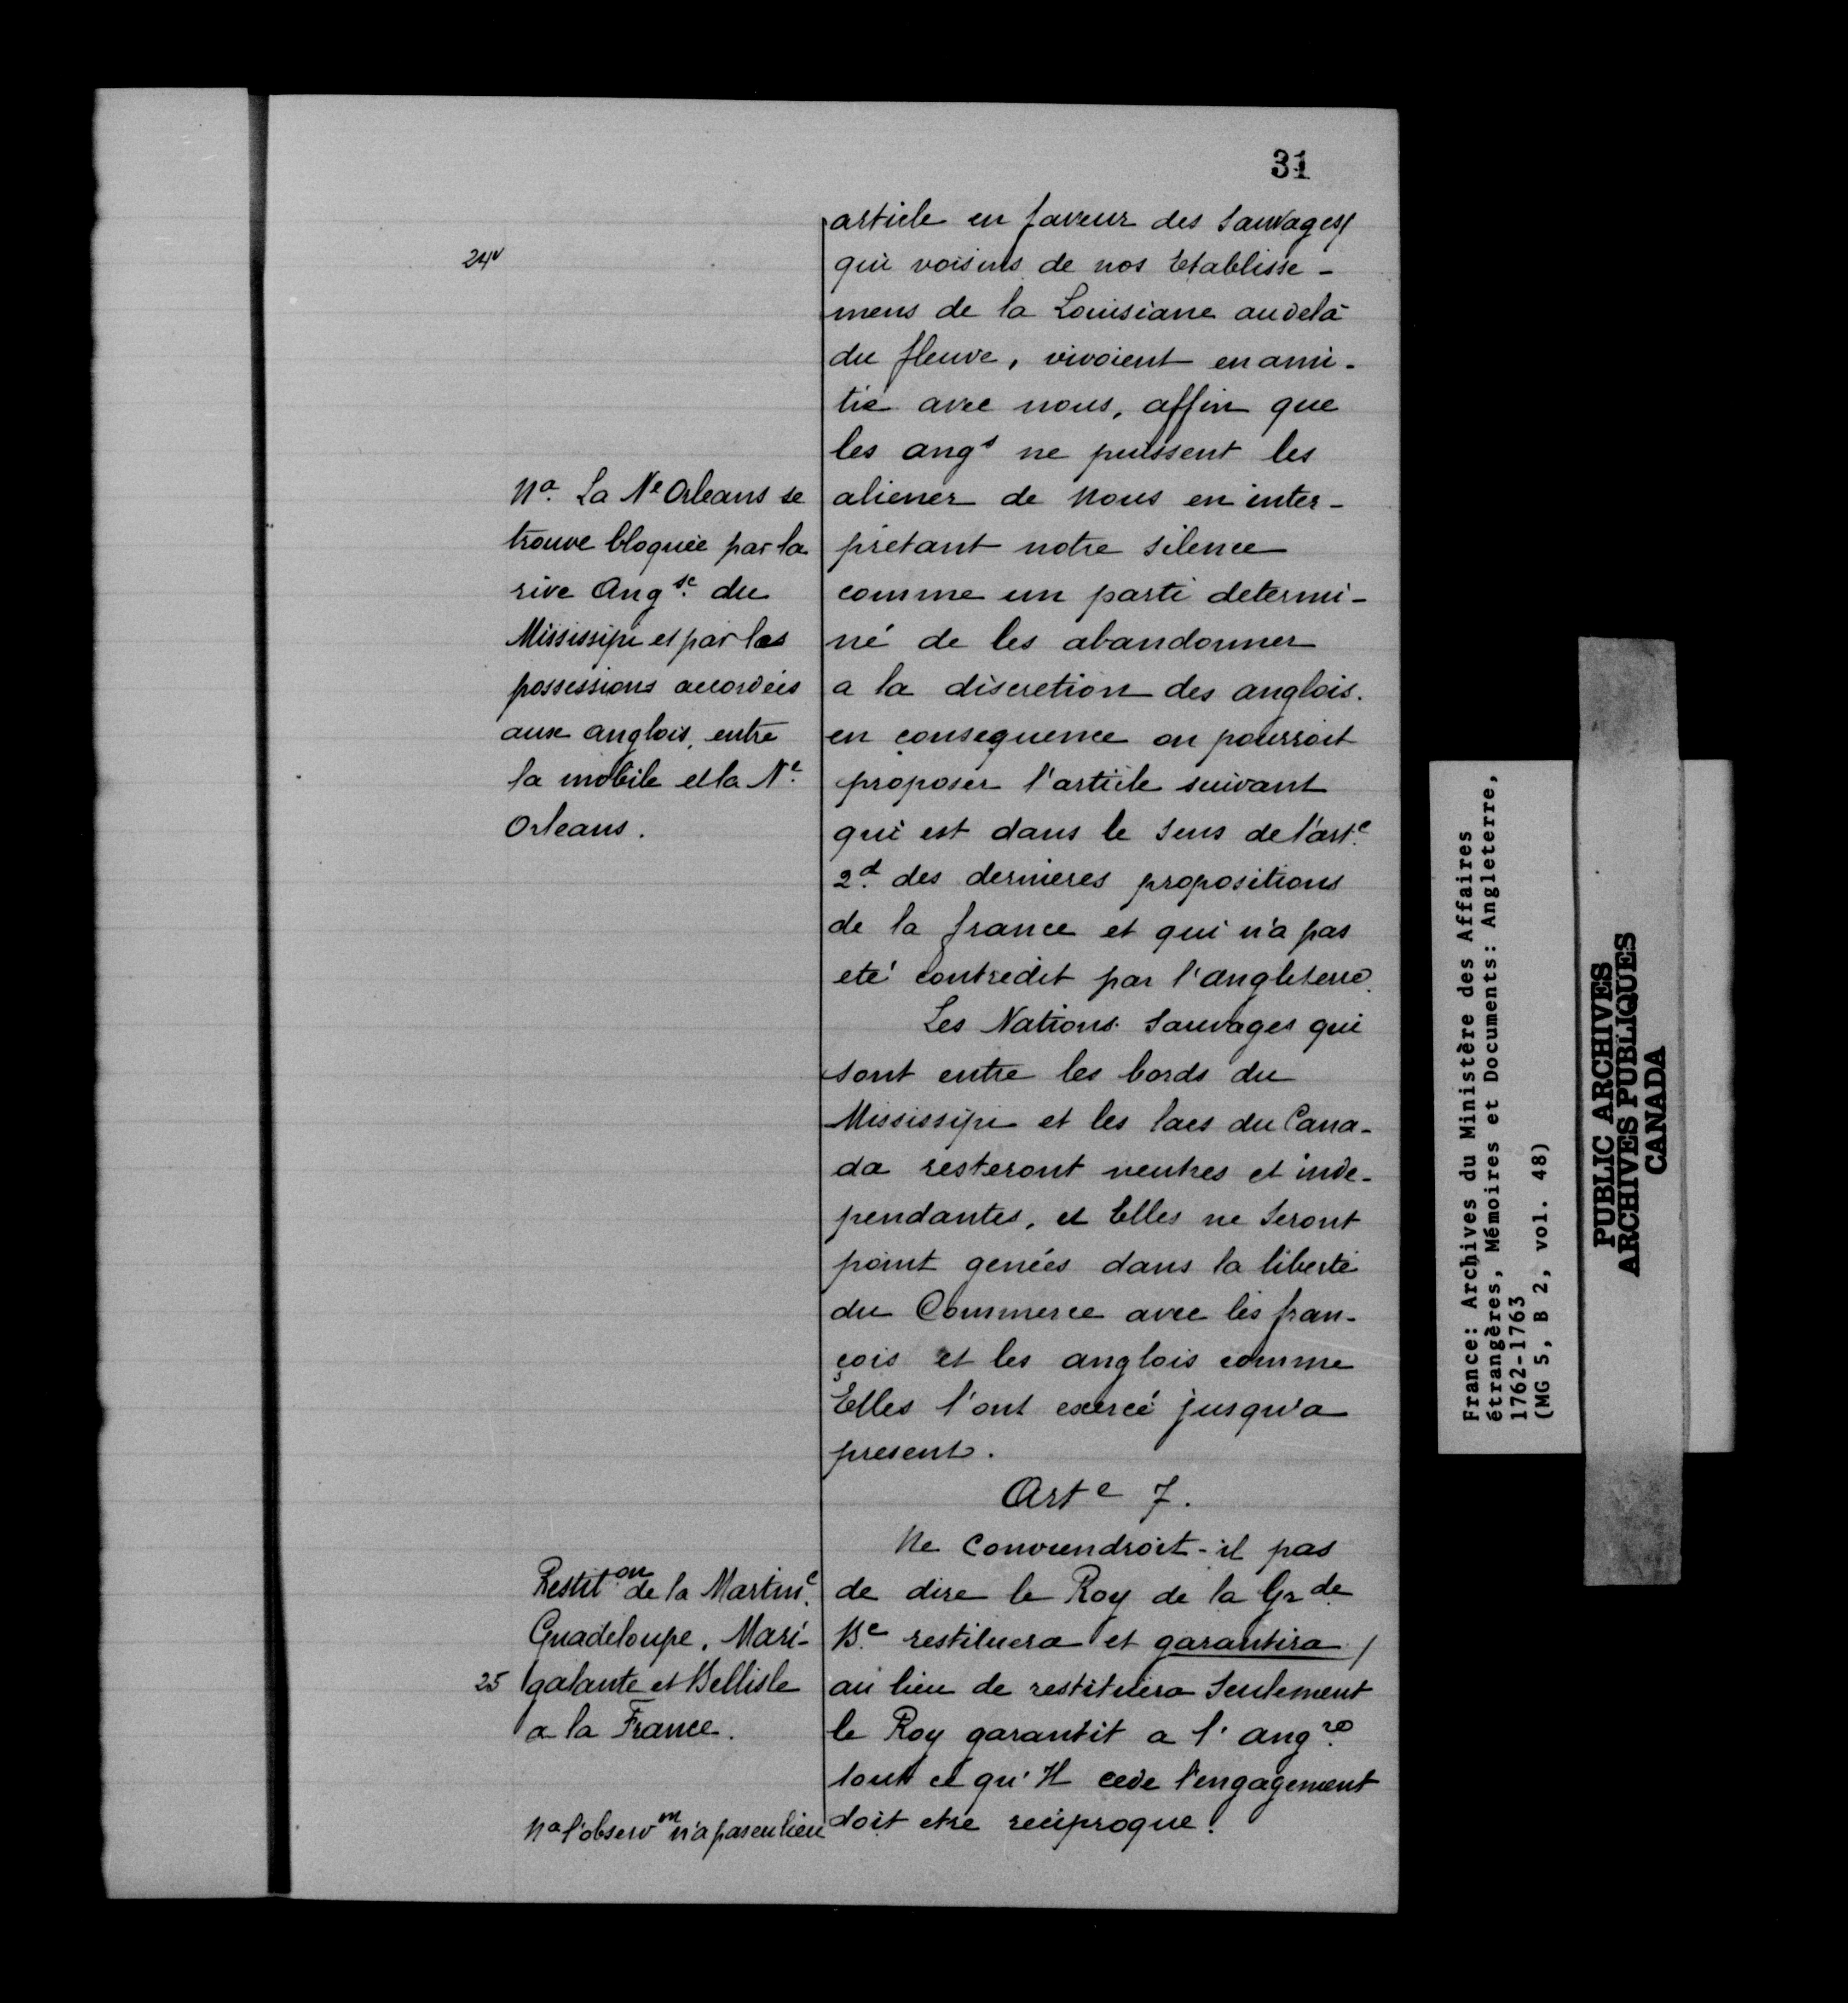 31
article en faveur des Sauvages
24v
qui voisins de nos Etablisse-
mens de la Louisiane audela
du fleuve, vivoient en ami-
tié avec nous, affin que
les angs ne puissent les
aliener de Nous en inter-
prétant notre silence
comme un parti determi-
né de les abandonner
a la discretion des anglois.
en consequence on pourroit
proposer l'article suivant
qui est dans le Sens de l'arte
2d des dernieres propositions
de la france et qui n'a pas
eté contredit par l'angleterre.
Les Nations Sauvages qui
sont entre les bords du
Mississipi et les lacs du Cana-
da resteront neutres et inde-
pendantes, et Elles ne Seront
point genées dans la liberté
du Commerce avec les fran-
çois et les anglois comme
Elles l'ont exercé jusqu'a
present.
Arte 7.
Ne Conviendroit-il pas
de dire le Roy de la Grde
Be restituera et garantira /
au lieu de restituera Seulement
le Roy garantit a l'angre
tout ce qu'Il cede l'engagement
doit etre reciproque.
Na. La Ne Orleans se
trouve bloquée par la
rive Angse du
Mississipi et par les
possessions accordées
aux anglois, entre
la mobile et la Ne
Orleans.
Restiton de la Martine.
Guadeloupe, Mari-
25 galante et Bellisle
a la France.
Na l'observon n'a pas eu lieu
France: Archives du Ministère des Affaires
étrangères, Mémoires et Documents: Angleterre,
1762-1763
(MG 5, B 2, vol. 48)
PUBLIC ARCHIVES
ARCHIVES PUBLIQUES
CANADA